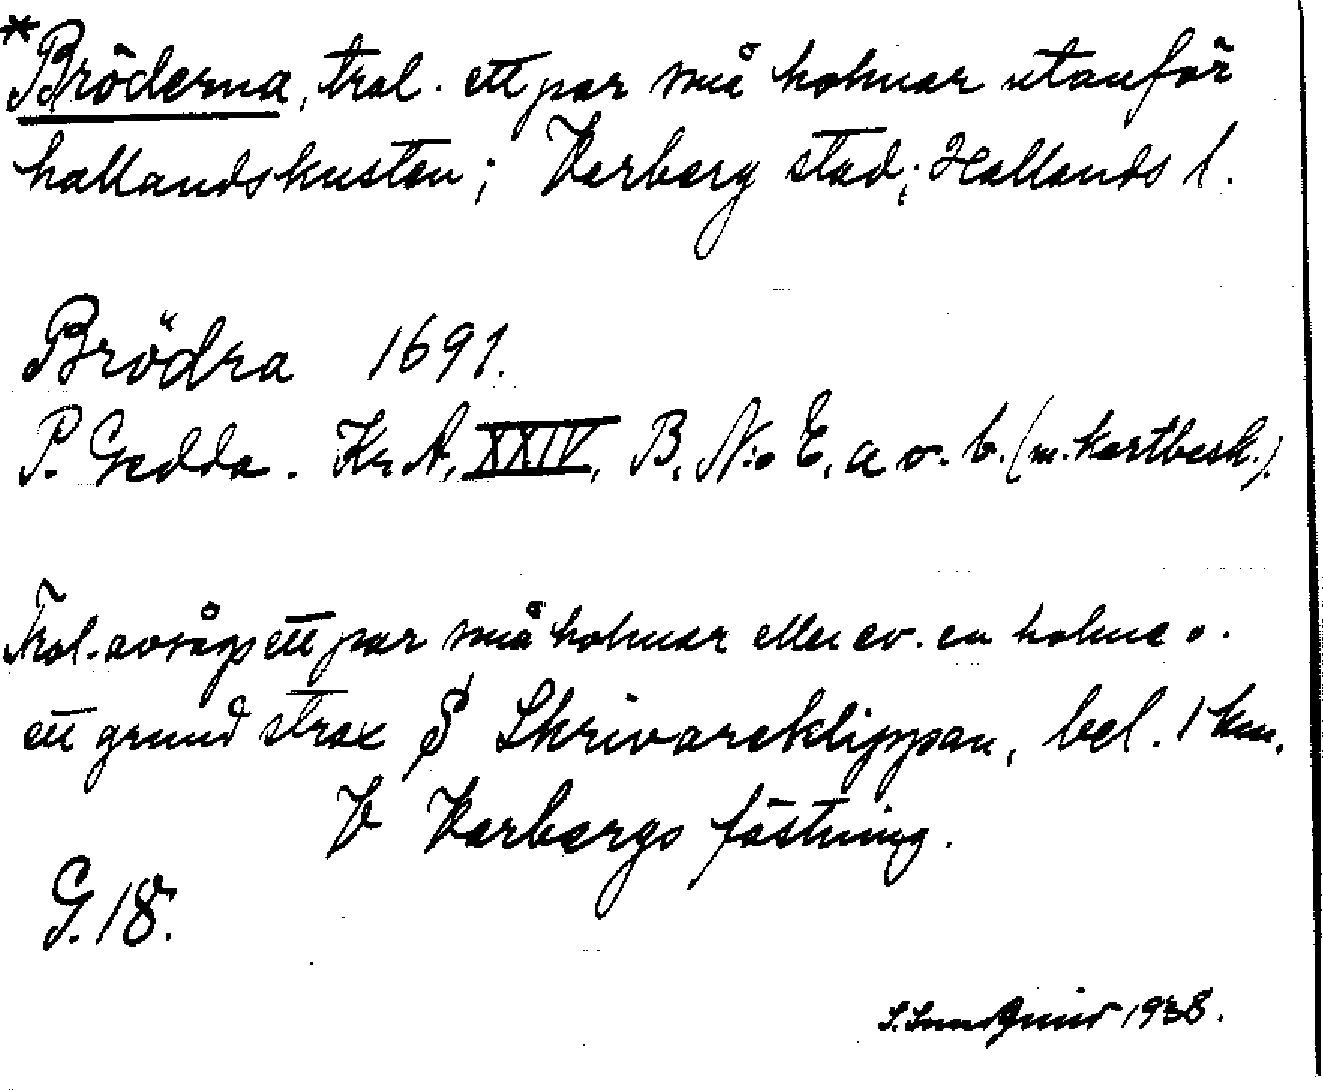 *Bröderna, trol. ett par små holmar utanför
hallandskusten; Varberg stad; Hallands l.
Brödra 1691.
P. Gedda. Kr. A, XXIV, B. N:o E. a o. b. (m. kartbesk.)
Trol. avsågs ett par små holmar eller ev. en holme o.
ett grund strax S Skrivareklippan, bel. 1 km.
V Varbergs fästning.
G. 18.
1938.